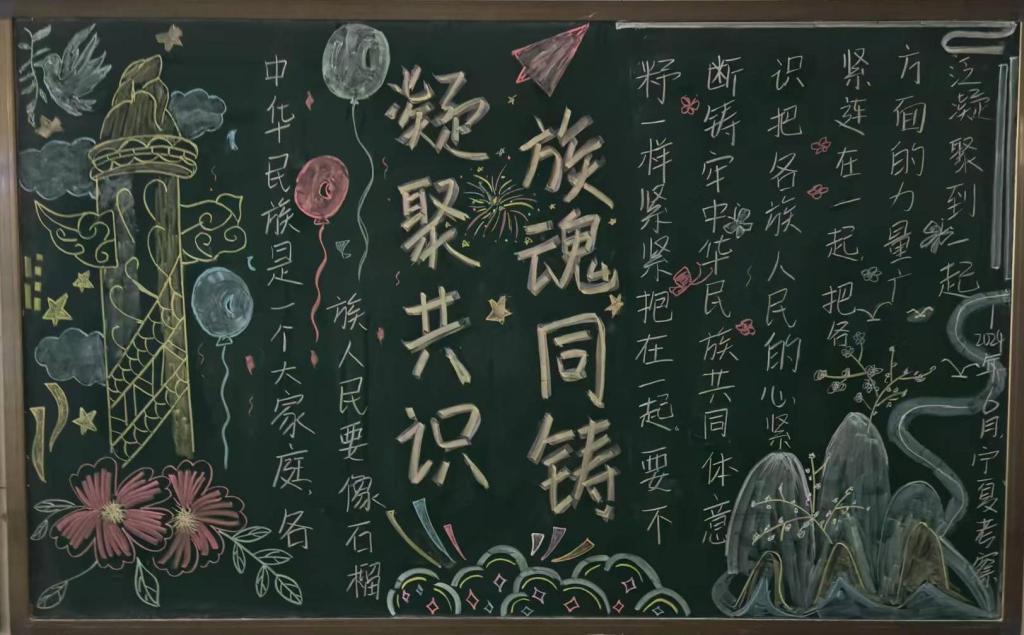 中华民族是一个大家庭,各
族人民要像石榴
凝聚共识
族魂同铸
籽一样紧紧抱在一起,要不
断铸牢中华民族共同体意
识把各族人民的心紧
紧连在一起,把各
方面的力量广
泛凝聚到一起
—2024年6月,宁夏考察